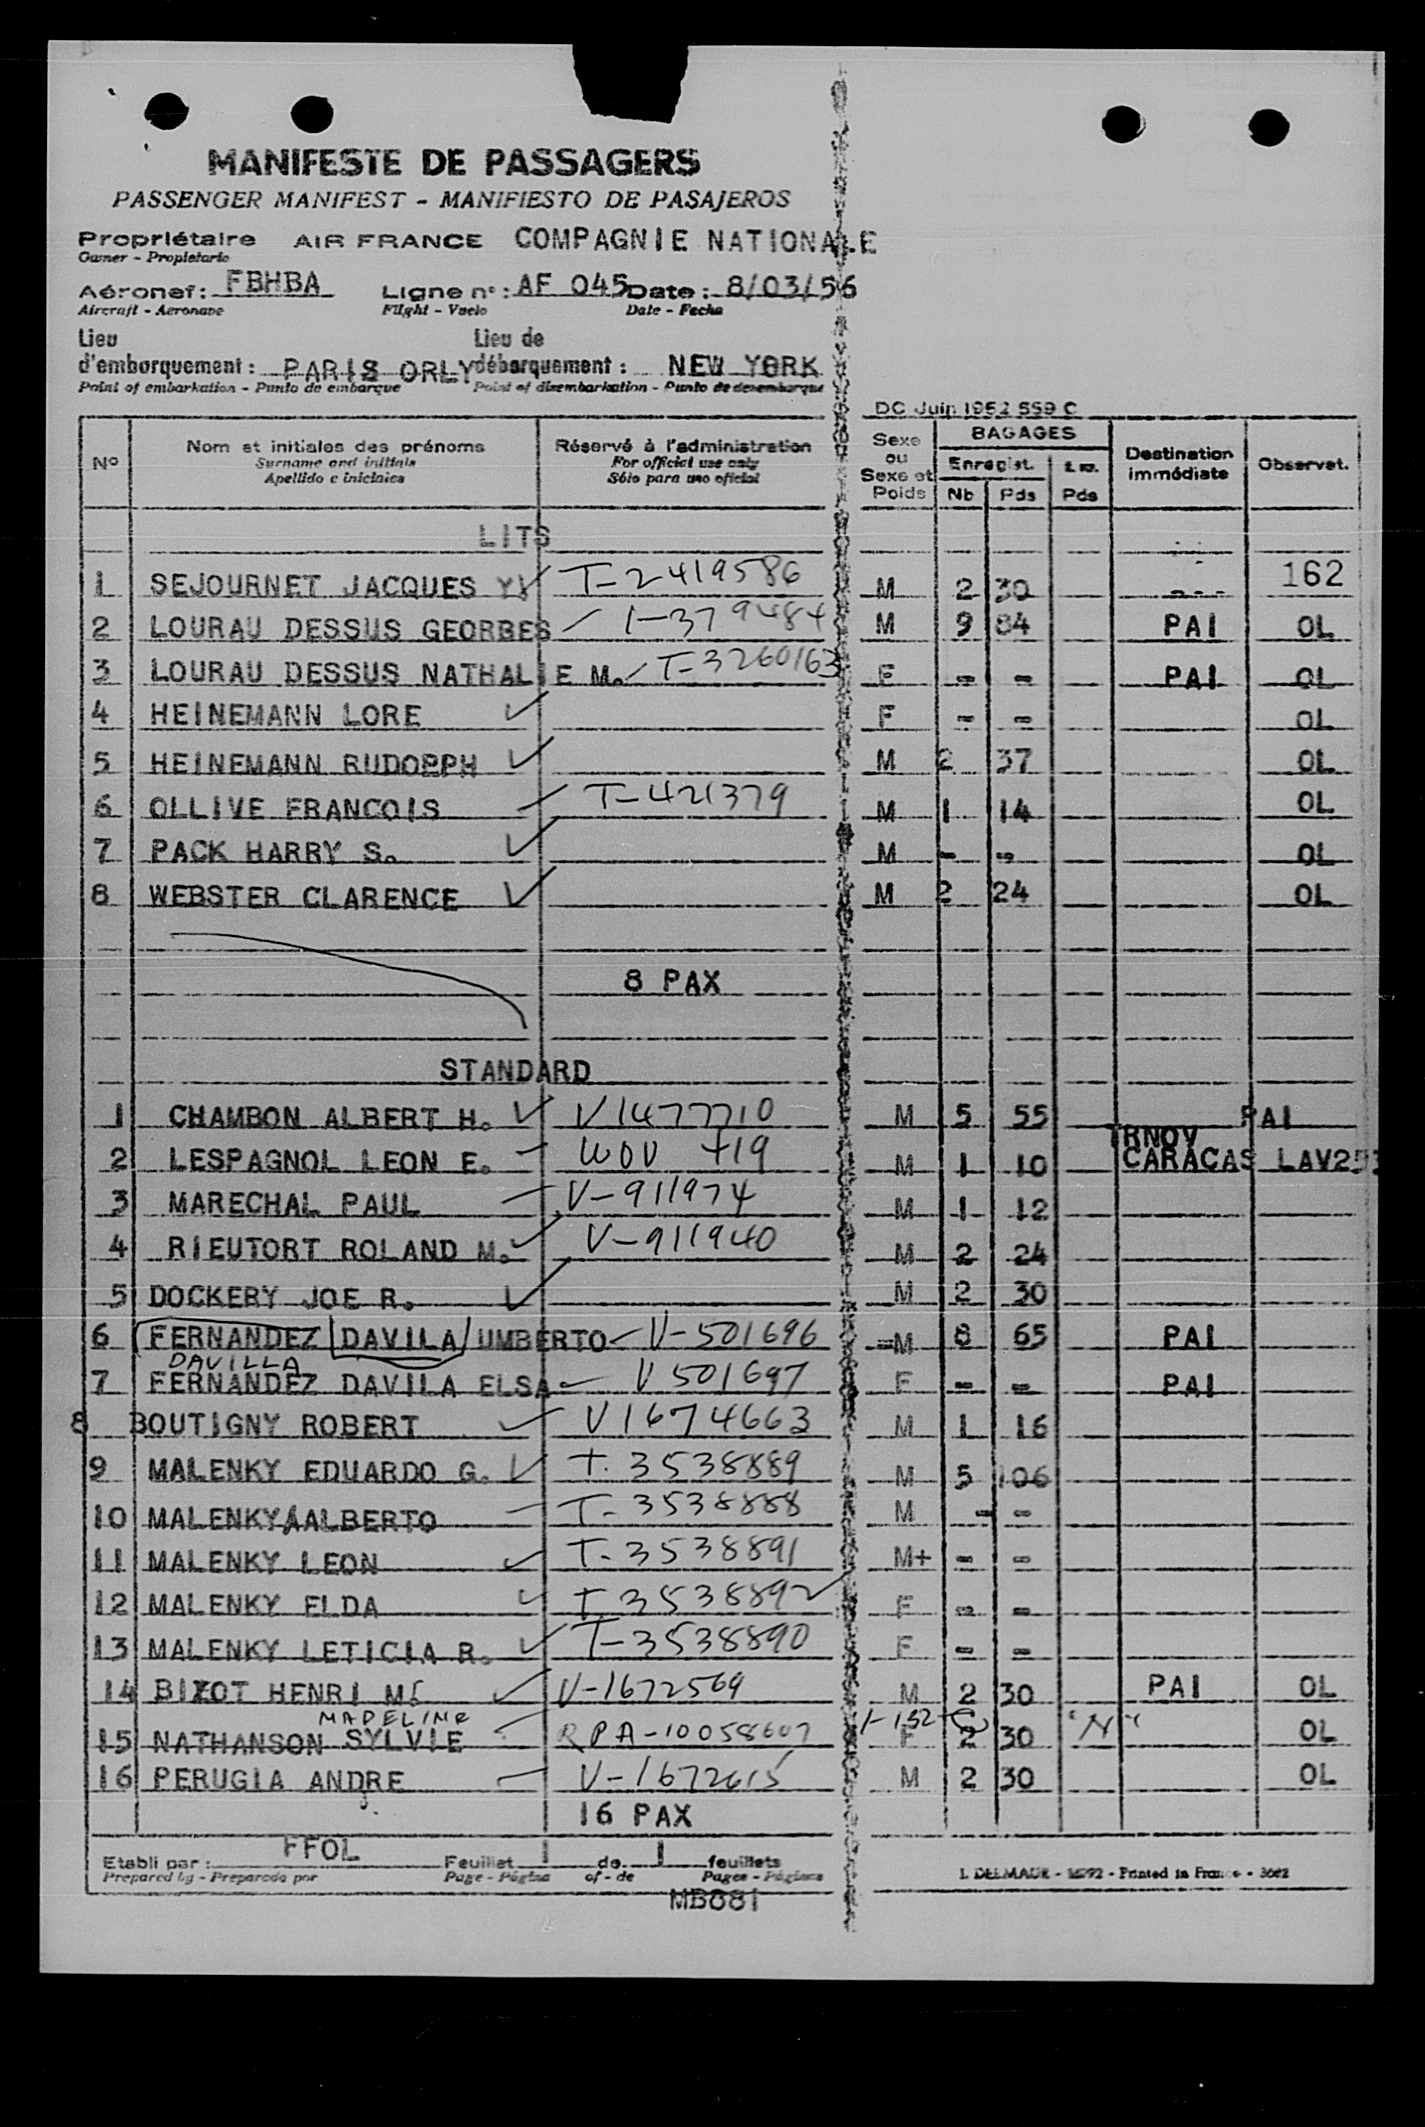 MANIFESTE DE PASSAGERS
PASSENGER MANIFEST - MANIFIESTO DE PASAJEROS
Propriétaire AIR FRANCE COMPAGNIE NATIONALE
Owner - Propietario
Aéronef: FBHBA Ligne n°: AF 045 Date: 8/03/56
Aircraft - Aeronave Flight - Vuelo Date - Fecha
Lieu Lieu de
d'embarquement: PARIS ORLY débarquement: NEW YORK
Point of embarkation - Punto de embarque Point of disembarkation - Punto de desembarque
DC Juin 1952 559 C
N° Nom et initiales des prénoms Réservé à l'administration Sexe ou Sexe et Poids BAGAGES Destination immédiate Observat.
Surname and initials For official use only Enregist.
Apellido e iniciales Sólo para uso oficial Nb Pds Pds
LITS
1 SEJOURNET JACQUES T-2419586 M 2 30 --- 162
2 LOURAU DESSUS GEORBES 1-379484 M 9 84 PAI OL
3 LOURAU DESSUS NATHALIE M. T-3260163 F - - PAI OL
4 HEINEMANN LORE F - - OL
5 HEINEMANN RUDOPPH M 2 37 OL
6 OLLIVE FRANCOIS T-421379 M 1 14 OL
7 PACK HARRY S. M - - OL
8 WEBSTER CLARENCE M 2 24 OL
8 PAX
STANDARD
1 CHAMBON ALBERT H. V1477710 M 5 55 PAI
TRNOV
2 LESPAGNOL LEON E. M 1 10 CARACAS LAV253
3 MARECHAL PAUL V-911974 M 1 12
4 RIEUTORT ROLAND M. V-911940 M 2 24
5 DOCKERY JOE R. M 2 30
6 FERNANDEZ DAVILA UMBERTO V-501696 M 8 65 PAI
DAVILLA
7 FERNANDEZ DAVILA ELSA V501697 F - - PAI
8 BOUTIGNY ROBERT V1674663 M 1 16
9 MALENKY EDUARDO G. T. 3538889 M 5 106
10 MALENKY AALBERTO T-3538888 M - -
11 MALENKY LEON T-3538891 M+ - -
12 MALENKY ELDA T 3538892 F - -
13 MALENKY LETICIA R. T-3538890 F - -
14 BIZOT HENRI M V-1672569 M 2 30 PAI OL
MADELINE
15 NATHANSON SYLVIE RPA-10058607 F 2 30 "N" OL
16 PERUGIA ANDRE V-1672615 M 2 30 OL
16 PAX
Etabli par: FFOL Feuillet 1 de 1 feuillets
Prepared by - Preparado por Page - Página of - de Pages - Páginas
I. DELMAUR - Printed in France
MB881